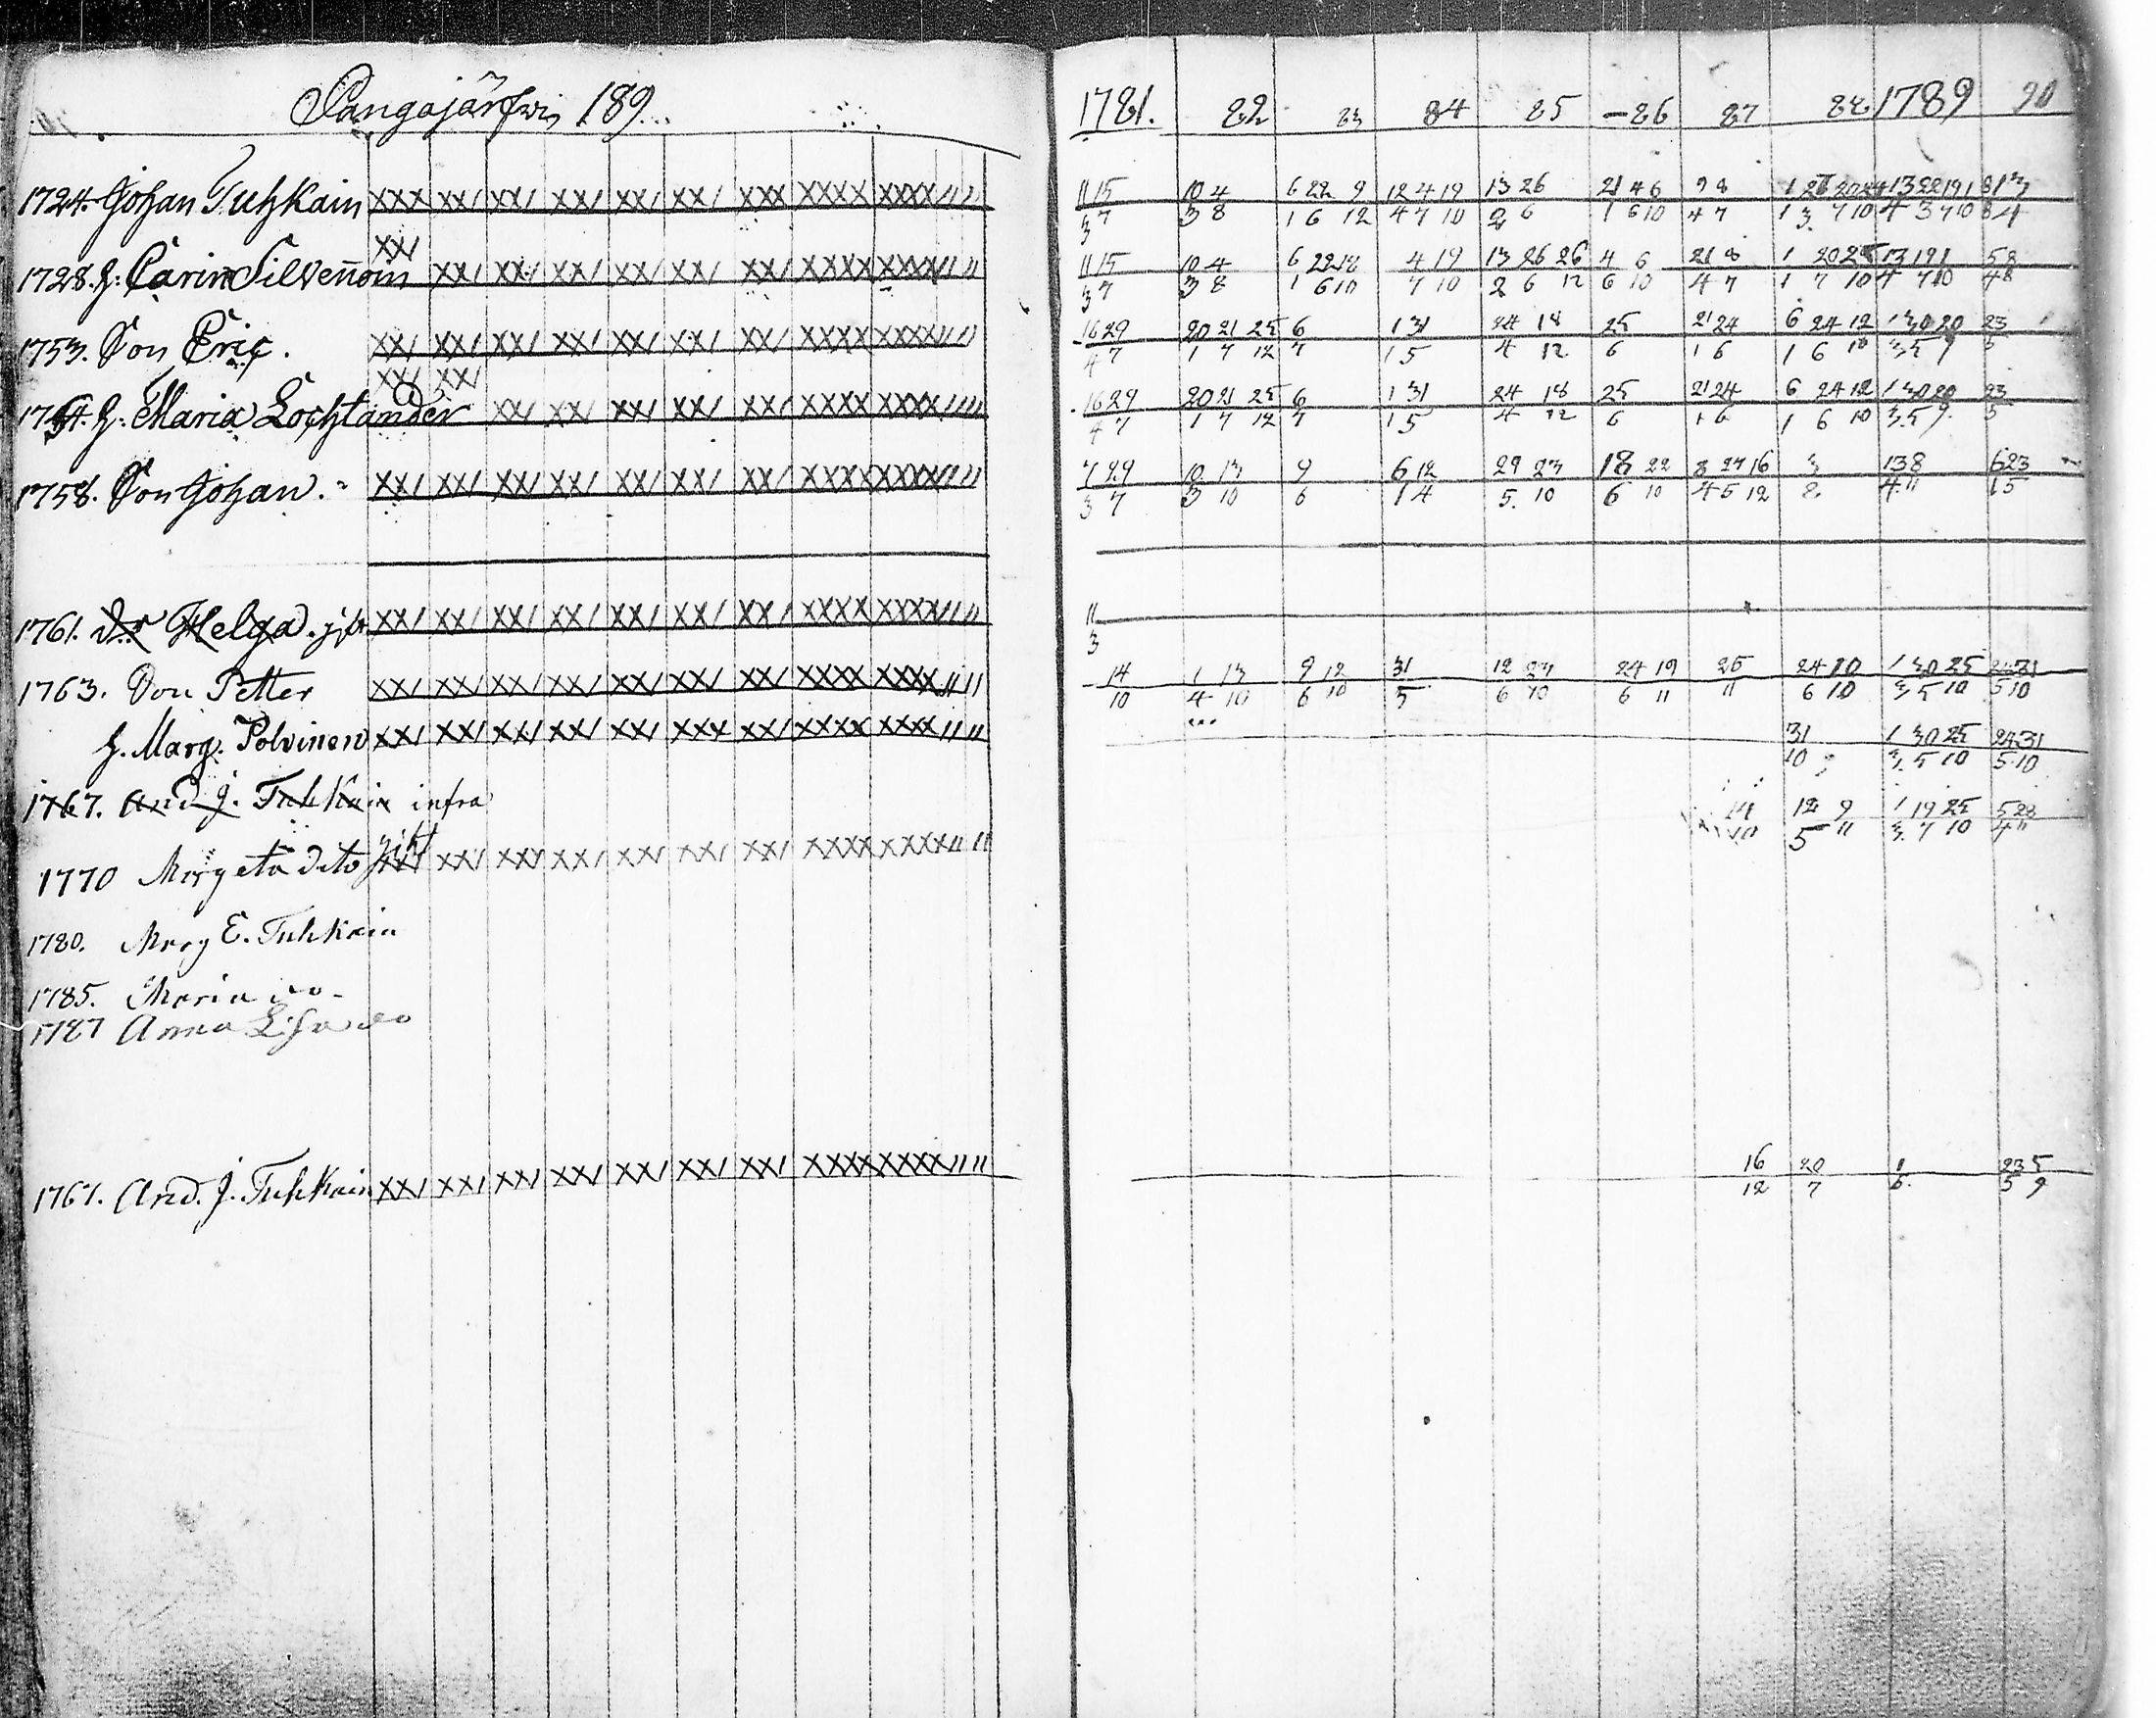 Pangajärfwi, 189.
1781. 82 83 84 85 -86 87 88 1789 90
1724. Johan Tuhkain XXX XX/ XX/ XX/ XX/ XX/ XXX XXXX XXXX////
11 15 10 4 6 22 9 12 4 19 13 26 21 4 6 9 8
3 7 3 8 1 6 12 4 7 10 2 6 1 6 10 4 7 1 3 7 10 4 3 7 10 8 4
XX/
1728. h: Carin Silvenoin XX/ XX/ XX/ XX/ XX/ XX/ XXXX XXXX////
11 15 10 4 6 22 18 4 19 13 26 26 4 6 21 8 1 20 28 13 19 1 5 8
3 7 3 8 1 6 10 7 10 2 6 12 6 10 4 7 1 7 10 4 7 10 4 8
1753. Son Eric. XX/ XX/ XX/ XX/ XX/ XX/ XX/ XXXX XXXX////
16 29 20 21 25 6 1 31 24 18 25 21 24 6 24 12 1 30 20 23
4 7 1 7 12 7 1 5 4 12 6 1 6 1 6 10 3 5 9 5
XX/ XX/
h: Maria Lochtander XX/ XX/ XX/ XX/ XX/ XXXX XXXX////
16 29 20 21 25 6 1 31 24 18 25 21 24 6 24 12 1 30 20 23
4 7 1 7 12 7 1 5 4 12 6 1 6 1 6 10 3 5 9. 5
1758. Son Johan. XX/ XX/ XX/ XX/ XX/ XX/ XX/ XXXX XXXX////
7 29 10 13 9 6 12 29 23 18 22 8 27 16 3 13 8 6 23
3 7 3 10 6 1 4 5. 10 6 10 4 5 12 8 4 11 1 5
1761. Helga. XX/ XX/ XX/ XX/ XX/ XX/ XX/ XXXX XXXX////
11
3
1763. Son Petter XX/ XX/ XX/ XX/ XX/ XX/ XX/ XXXX XXXX////
14 1 13 9 12 31 12 23 24 19 25 24 10 1 30 25 24 31
10 4 10 6 10 5 6 10 6 11 11 6 10 3 5 10 5 10
h. Marg. Polvinen XX/ XX/ XX/ XX/ XX/ XXX XX/ XXXX XXXX////
31 1 30 25 24 31
10 3. 5 10 5 10
1767. And. J. Tuhkain infra
14 12 9 1 19 25 5 28
10 5 11 3. 7 10 4 11
gift
1770 Margeta dito XX/ XX/ XX/ XX/ XX/ XX/ XX/ XXXX XXXX////
1780. Marg E. Tuhkain
1785. Maria do-
1787 Anna Lisa do
1767. And. J. Tuhkain XX/ XX/ XX/ XX/ XX/ XX/ XX/ XXXX XXXX////
16 20 1 23 5
12 7 6. 5 9